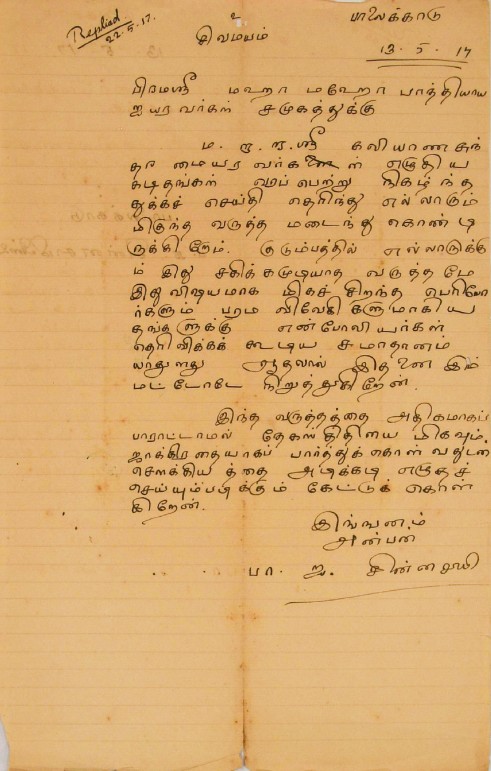 Replied
22.5.17.
உ
சிவமயம்
பாலைக்காடு
13. 5. 17
பிரமஸ்ரீ மஹா மஹோ பாத்தியாய
ஐயரவர்கள் சமுகத்துக்கு
ம. ள. ள. ஸ்ரீ கலியாணசுந்
தர மையரவர்கள் எழுதிய
கடிதங்கள் பெற்று நிகழ்ந்த
துக்கச் செய்தி தெரிந்து எல்லாரும்
மிகுந்த வருத்த மடைந்து கொண்டி
ருக்கி றோம். குடும்பத்தில் எல்லாருக்கு
ம் இது சகிக்கமுடியாத வருத்த மே
இதுவிஷயமாக மிகச் சிறந்த பெரியோ
ர்களும் பரம விவேகி களுமாகிய
தங்களுக்கு என்போலியர்கள்
தெரிவிக்கக் கூடிய சமாதானம்
யாதுளது ஆதலால் இதனை இம்
மட்டோடே நிறுத்துகிறேன்.
இந்த வருத்தத்தை அதிகமாகப்
பாராட்டாமல் தேகஸ்திதியை மிகவும்
ஜாக்கிரதையாகப் பார்த்துக் கொள்வதுடன்
செளக்கிய த்தை அடிக்கடி எழுதச்
செய்யும்படிக்கும் கேட்டுக் கொள்
கிறேன்.
இங்ஙனம்
அன்பன்
பா. சின்னசாமி